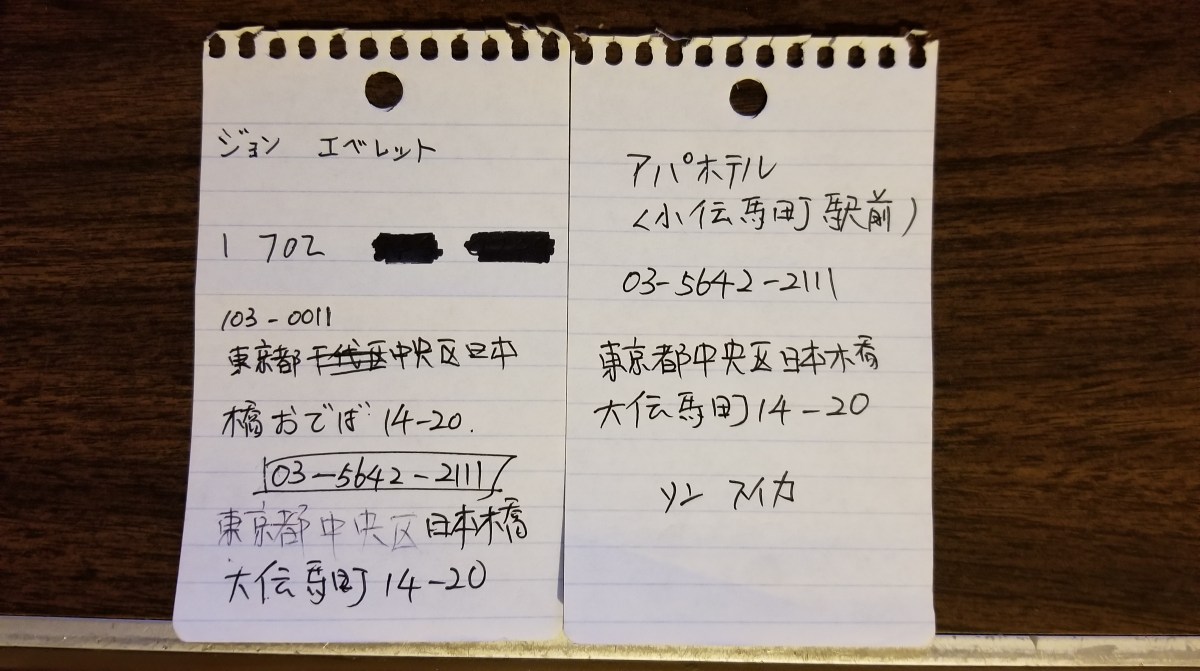 ジョン エベレット
1 702
103-0011
東京都千代区中央区日本
橋おでば 14-20.
03-5642-2111
東京都中央区日本橋
大伝馬町 14-20
アパホテル
(小伝馬町駅前)
03-5642-2111
東京都中央区日本橋
大伝馬町 14-20
ソン スイカ